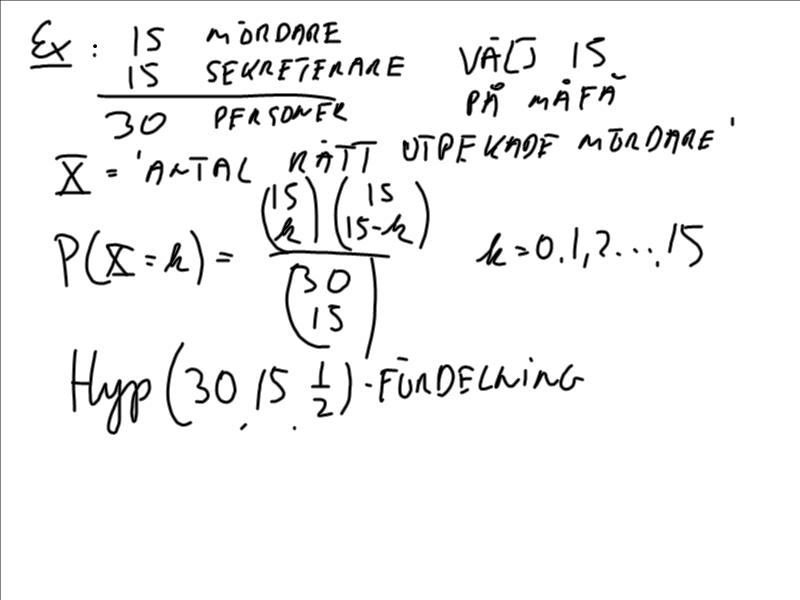 Ex: 15 MÖRDARE VÄLJ 15
15 SEKRETERARE PÅ MÅFÅ
30 PERSONER
X = 'ANTAL RÄTT UTPEKADE MÖRDARE'
P(X=k) = \frac{\binom{15}{k}\binom{15}{15-k}}{\binom{30}{15}} k=0,1,2...,15
Hyp(30,15,\frac{1}{2})-FÖRDELNING